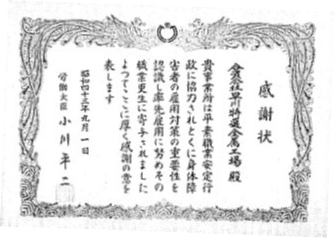 感謝状
合資会社早川特殊金属工場 殿
貴事業所は平素職業安定行
政に協力されとくに身体障
害者の雇用対策の重要性を
認識し率先雇用に努めその
職業更生に寄与されました
よってここに厚く感謝の意を
表します
昭和四十三年九月一日
労働大臣 小川平二